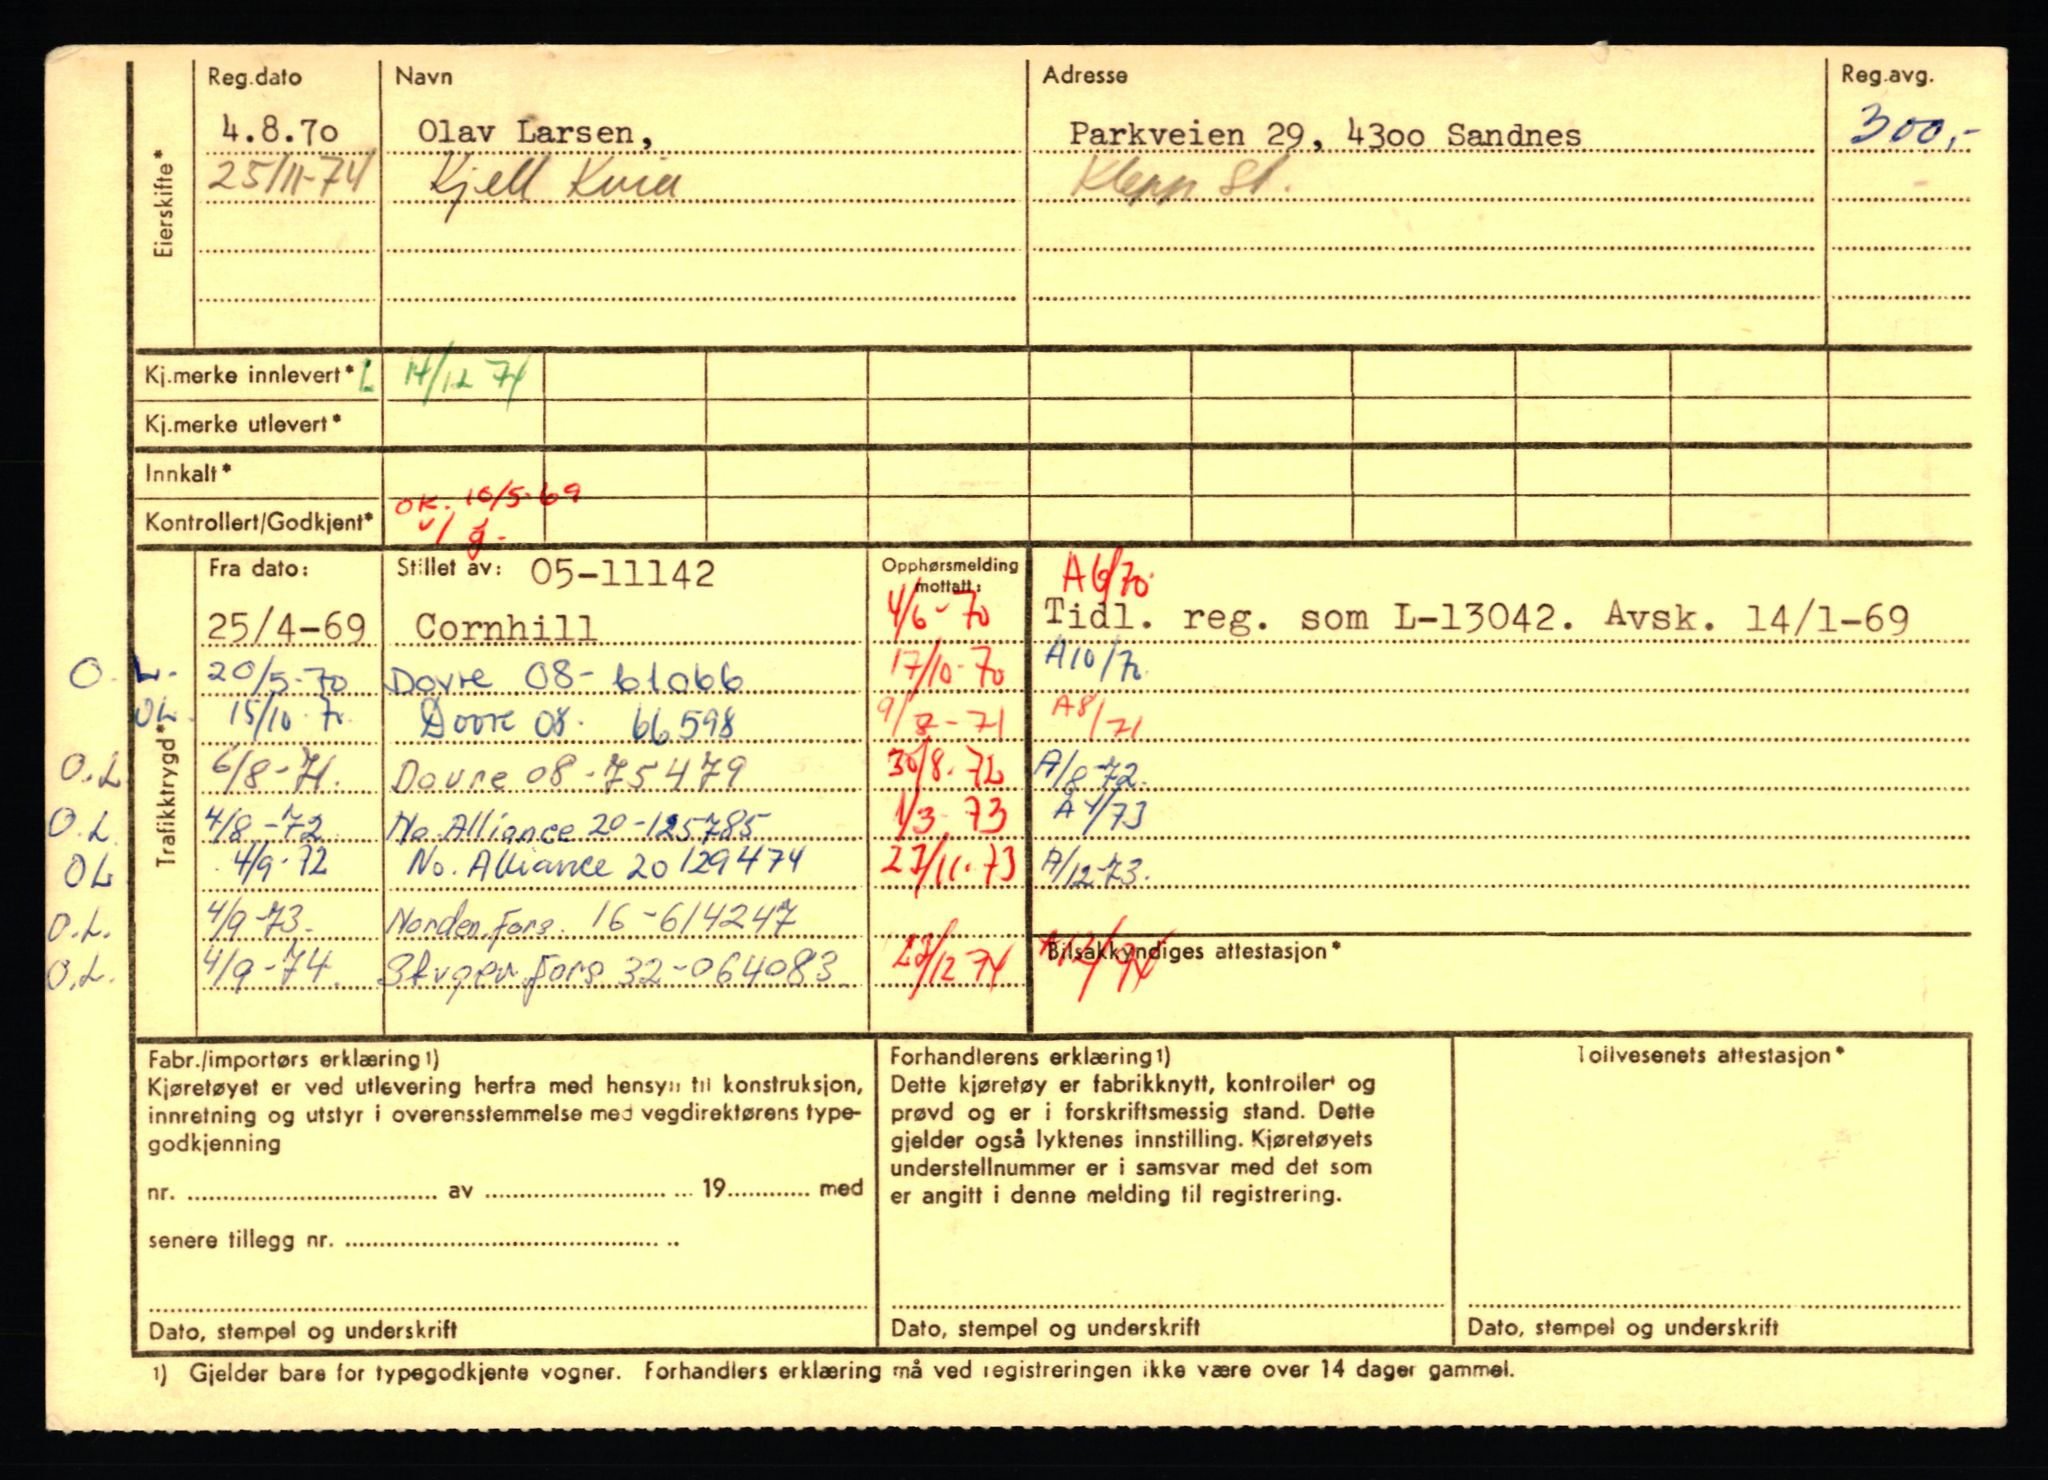 Reg.dato Navn Adresse Reg.avg.
Eierskifte*
4.8.70 Olav Larsen, Parkveien 29, 4300 Sandnes 300,-
25/11-74 Kjell Kvia Klepp St.
Kj.merke innlevert* L 14/12 74
Kj.merke utlevert*
Innkalt*
Kontrollert/Godkjent* OK. 10/5-69
v/ g.
Trafikktrygd*
Fra dato: Stillet av: 05-11142 Opphørsmelding mottatt: A 6/70.
25/4-69 Cornhill 4/6-70 Tidl. reg. som L-13042. Avsk. 14/1-69
O. L. 20/5-70 Dovre 08-61066 17/10-70 A10/70
OL. 15/10-70 Dovre 08. 66598 9/8-71 A8/71
O.L 6/8-71. Dovre 08-75479 30/8-72 A/8-72.
O.L. 4/8-72 No. Alliance 20-125785 1/3-73 A 4/73
OL 4/9-72 No. Alliance 20 129474 27/11-73 A/12-73.
O.L. 4/9-73. Norden fors. 16-614247
Bilsakkyndiges attestasjon*
O.L. 4/9-74. Skugen Fors 32-064083. 23/12 74 A 12/74
Fabr./importørs erklæring 1)
Kjøretøyet er ved utlevering herfra med hensyn til konstruksjon,
innretning og utstyr i overensstemmelse med vegdirektørens type-
godkjenning
nr. av 19 med
senere tillegg nr.
Dato, stempel og underskrift
Forhandlerens erklæring 1)
Dette kjøretøy er fabrikknytt, kontrollert og
prøvd og er i forskriftsmessig stand. Dette
gjelder også lyktenes innstilling. Kjøretøyets
understellnummer er i samsvar med det som
er angitt i denne melding til registrering.
Dato, stempel og underskrift
Tollvesenets attestasjon*
Dato, stempel og underskrift
1) Gjelder bare for typegodkjente vogner. Forhandlers erklæring må ved registreringen ikke være over 14 dager gammel.